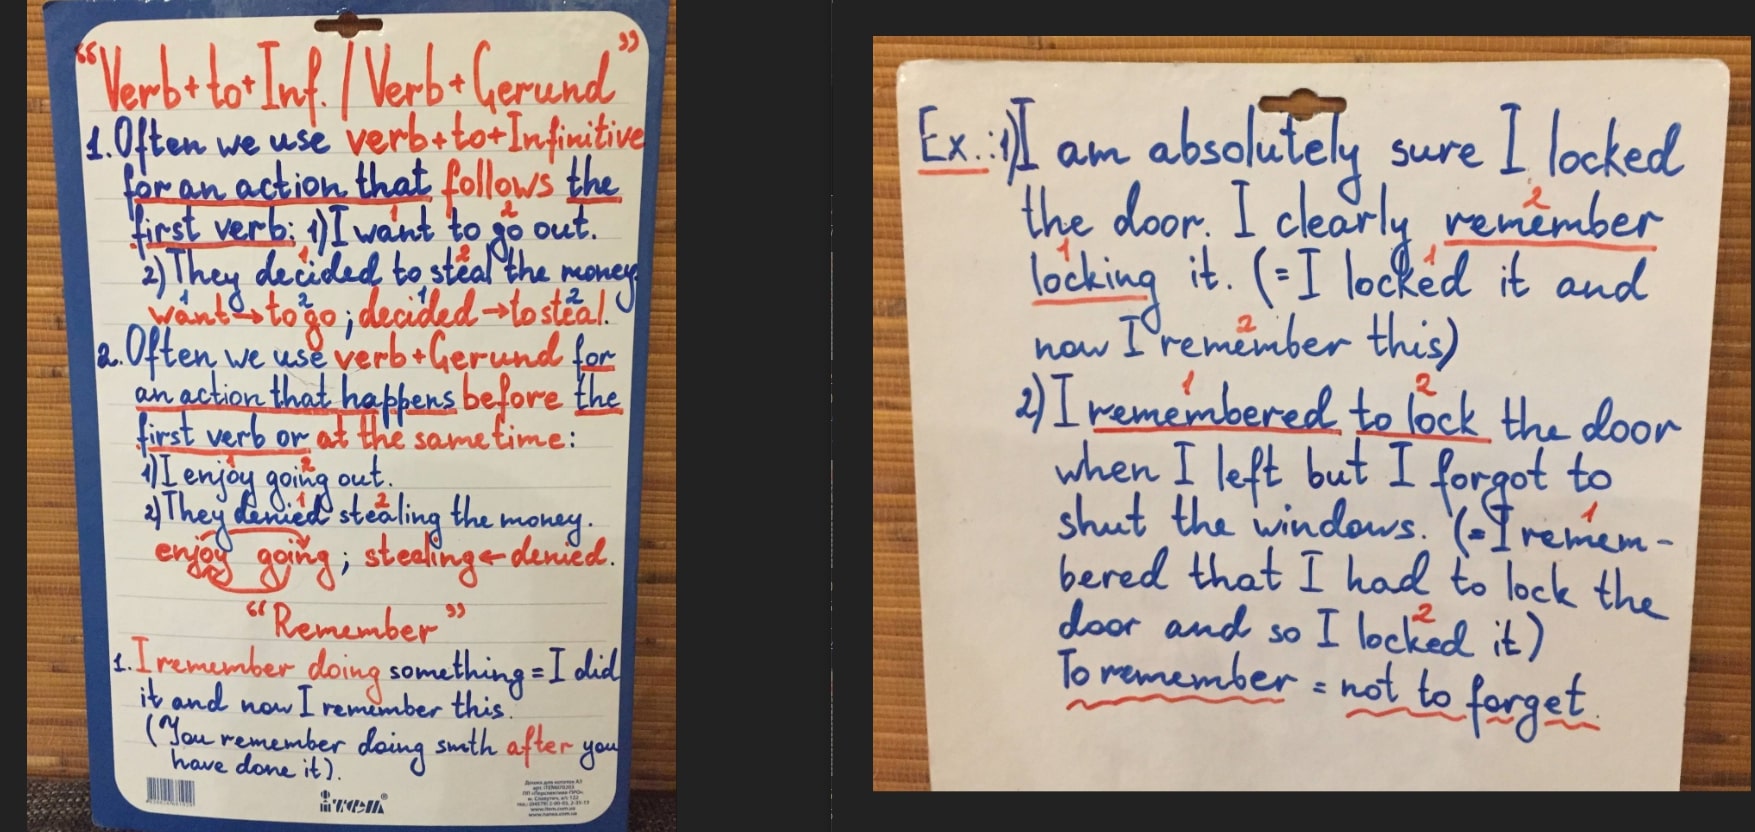 “Verb+to+Inf. / Verb+Gerund”
1. Often we use verb+to+Infinitive
for an action that follows the
first verb: 1) I want to go out.
1 2
2) They decided to steal the money
1 2
want→to go; decided→to steal.
1 2 1 2
2. Often we use verb+Gerund for
an action that happens before the
first verb or at the same time:
1) I enjoy going out.
1 2
2) They denied stealing the money.
1 2
enjoy going; stealing←denied.
“Remember”
1. I remember doing something = I did
it and now I remember this.
(You remember doing smth after you
have done it).
iтем
Ex.: 1) I am absolutely sure I locked
the door. I clearly remember
2
locking it. (= I locked it and
1 1
now I remember this)
2
2) I remembered to lock the door
1 2
when I left but I forgot to
shut the windows. (= I remem-
1
bered that I had to lock the
door and so I locked it)
2
To remember = not to forget.